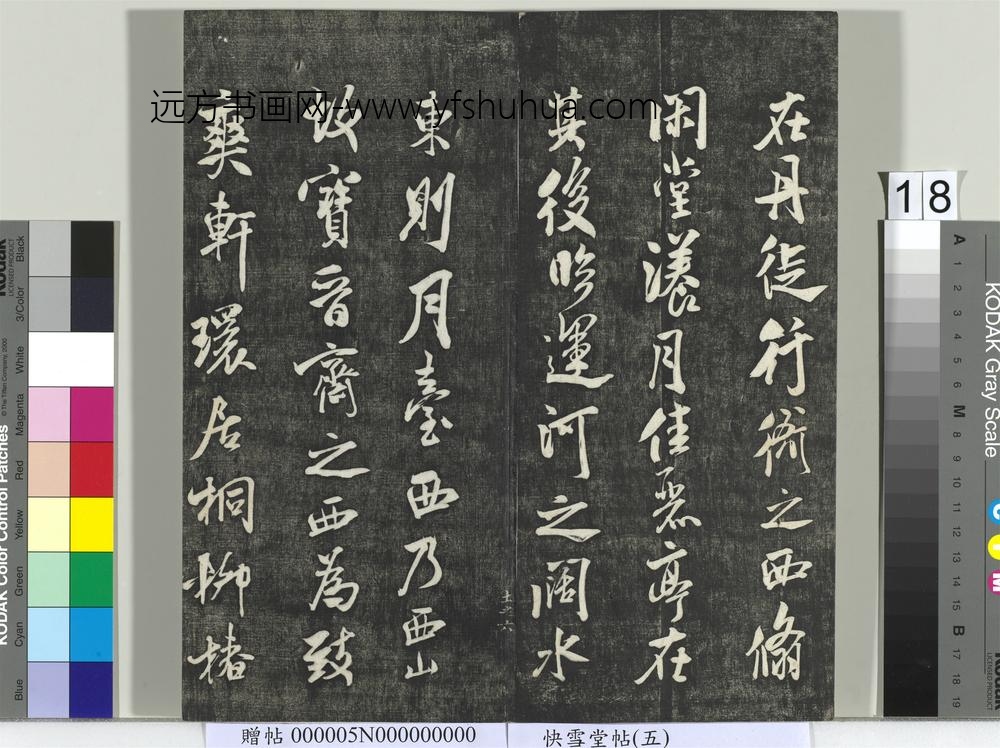 在丹徒行衙之西翛
闲堂漾月佳丽亭在
其後临運河之阔水
東則月臺西乃西山
故寳晋齋之西為致
爽軒環居桐柳椿
土之六
远方书画网-www.yfshuhua.com
18
贈帖 000005N000000000
快雪堂帖(五)
KODAK Color Control Patches
© The Tiffen Company, 2000
Kodak
LICENSED PRODUCT
Blue
Cyan
Green
Yellow
Red
Magenta
White
3/Color
Black
KODAK Gray Scale
A 1 2 3 4 5 6 M 8 9 10 11 12 13 14 15 B 17 18 19
C
Y
M
Kodak
LICENSED PRODUCT